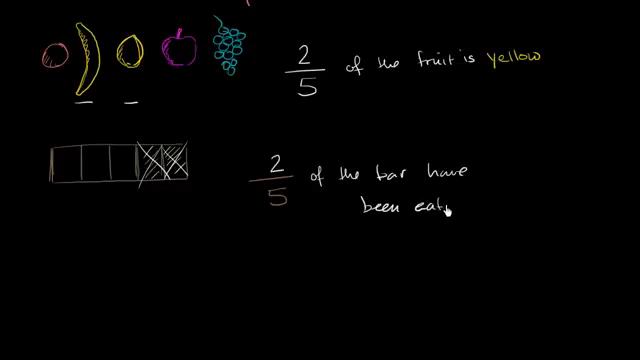 2/5 of the fruit is yellow
2/5 of the bar have
been eat